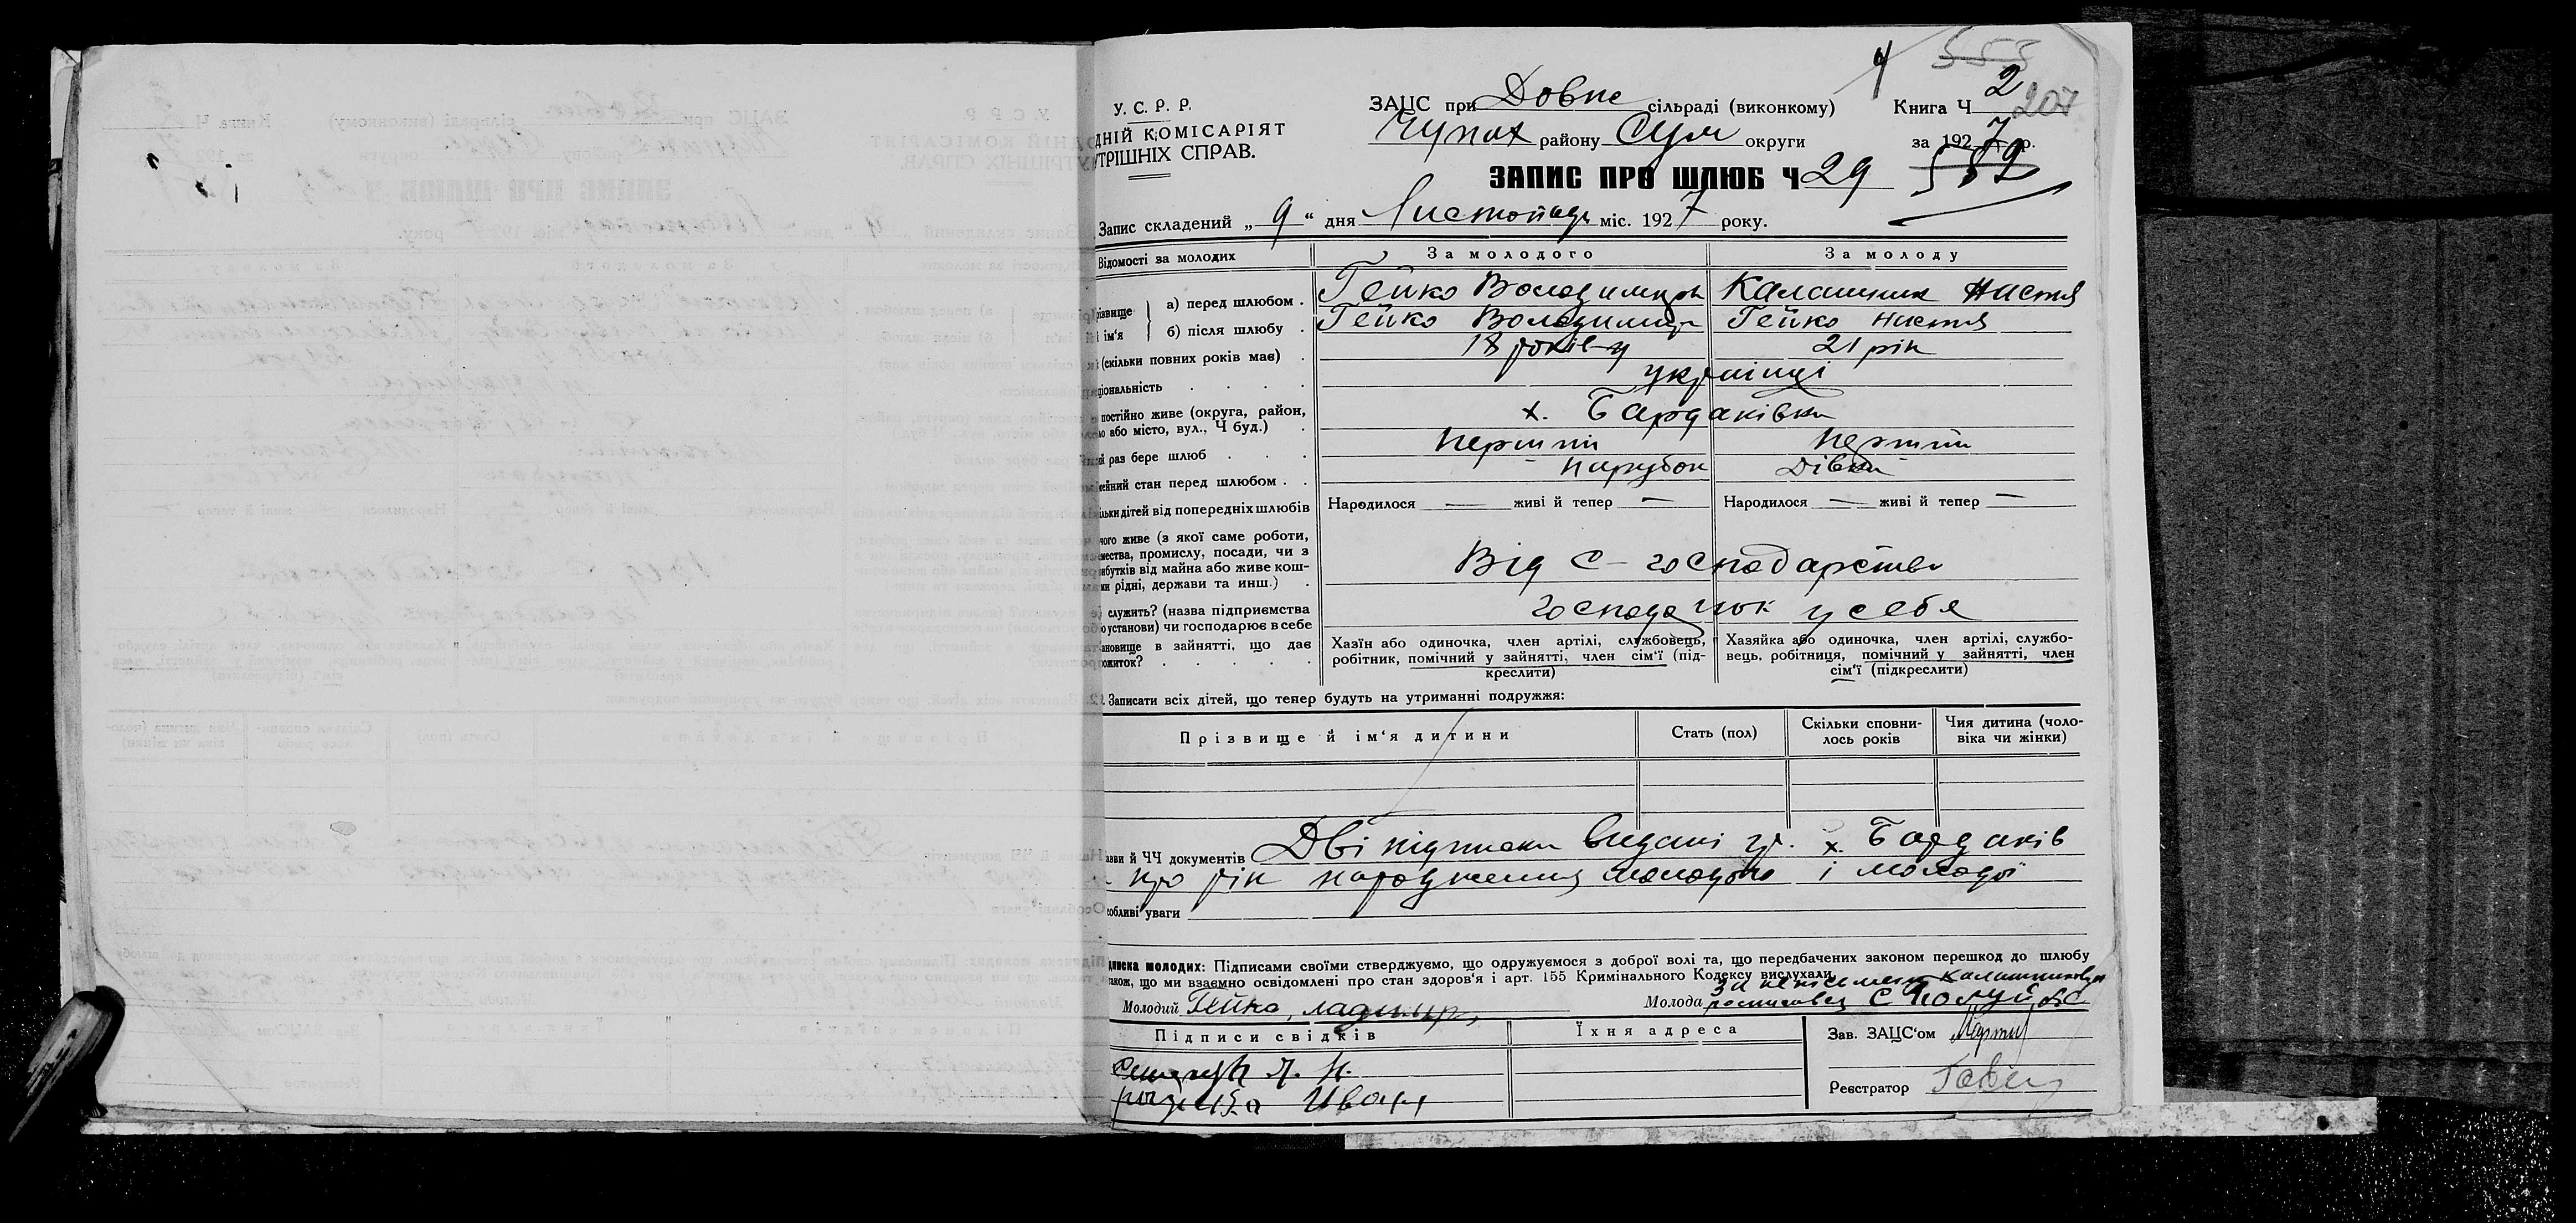 4 555
У. С. Р. Р. ЗАЦС при Довпс сільраді (виконкому) Книга Ч 2 207
ДНІЙ КОМІСАРІЯТ Чупах району Сум округи за 1927 р.
УТРІШНІХ СПРАВ.
ЗАПИС ПРО ШЛЮБ Ч 29
Запис складений „ 9 “ дня Листопадь міс. 1927 року.
Відомості за молодих За молодого За молоду
різвище а) перед шлюбом . Гейко Володимирь Калашник Настя
і ім‘я б) після шлюбу . Гейко Володимирь Гейко Настя
(скільки повних років має) . 18 років 21 рік
ціональність . . . . українці
постійно живе (округа, район, х. Бардаківка
ло або місто, вул., Ч буд.) .
ий раз бере шлюб . . . Перший Перший
мейний стан перед шлюбом . . парубок дівка
ільки дітей від попередніх шлюбів Народилося — живі й тепер — Народилося — живі й тепер —
чого живе (з якої саме роботи,
мества, промислу, посади, чи з
ибутків від майна або живе кош- Від с-господарства
ми рідні, держави та инш.) .
служить? (назва підприємства господарюк у себе
о установи) чи господарює в себе
ановище в зайнятті, що дає Хазїн або одиночка, член артілі, службовець, Хазяйка або одиночка, член артілі, службо-
ожиток? . . . . . робітник, помічний у зайнятті, член сім‘ї (під- вець, робітниця, помічний у зайнятті, член
креслити) сім‘ї (підкреслити)
Записати всіх дітей, що тепер будуть на утриманні подружжя:
Прізвище й ім‘я дитини Стать (пол) Скільки сповни- Чия дитина (чоло-
лось років віка чи жінки)
азви й ЧЧ документів Дві підписки видані гр. х. Бардаків
про рік народження молодого і молодої
собливі уваги
дписка молодих: Підписами своїми стверджуємо, що одружуємося з доброї волі та, що передбачених законом перешкод до шлюбу
акож, що ми взаємно освідомлені про стан здоров‘я і арт. 155 Кримінального Кодексу вислухали.
за неписьмену Калашникову
Молодий Гейко, Молода росписався
Підписи свідків Їхня адреса Зав. ЗАЦС‘ом
Я. Н.
Иван Реєстратор